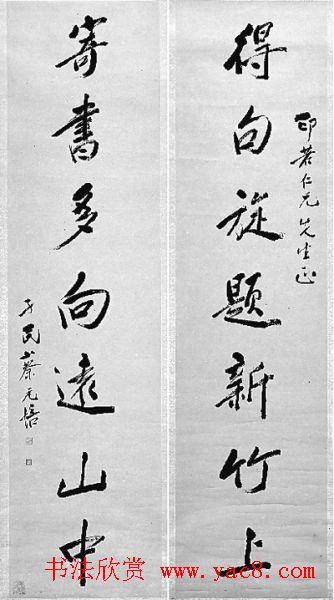 得句旋題新竹上
印若仁兄先生正
寄書多向遠山中
孑民蔡元培
书法欣赏 www.yac8.com